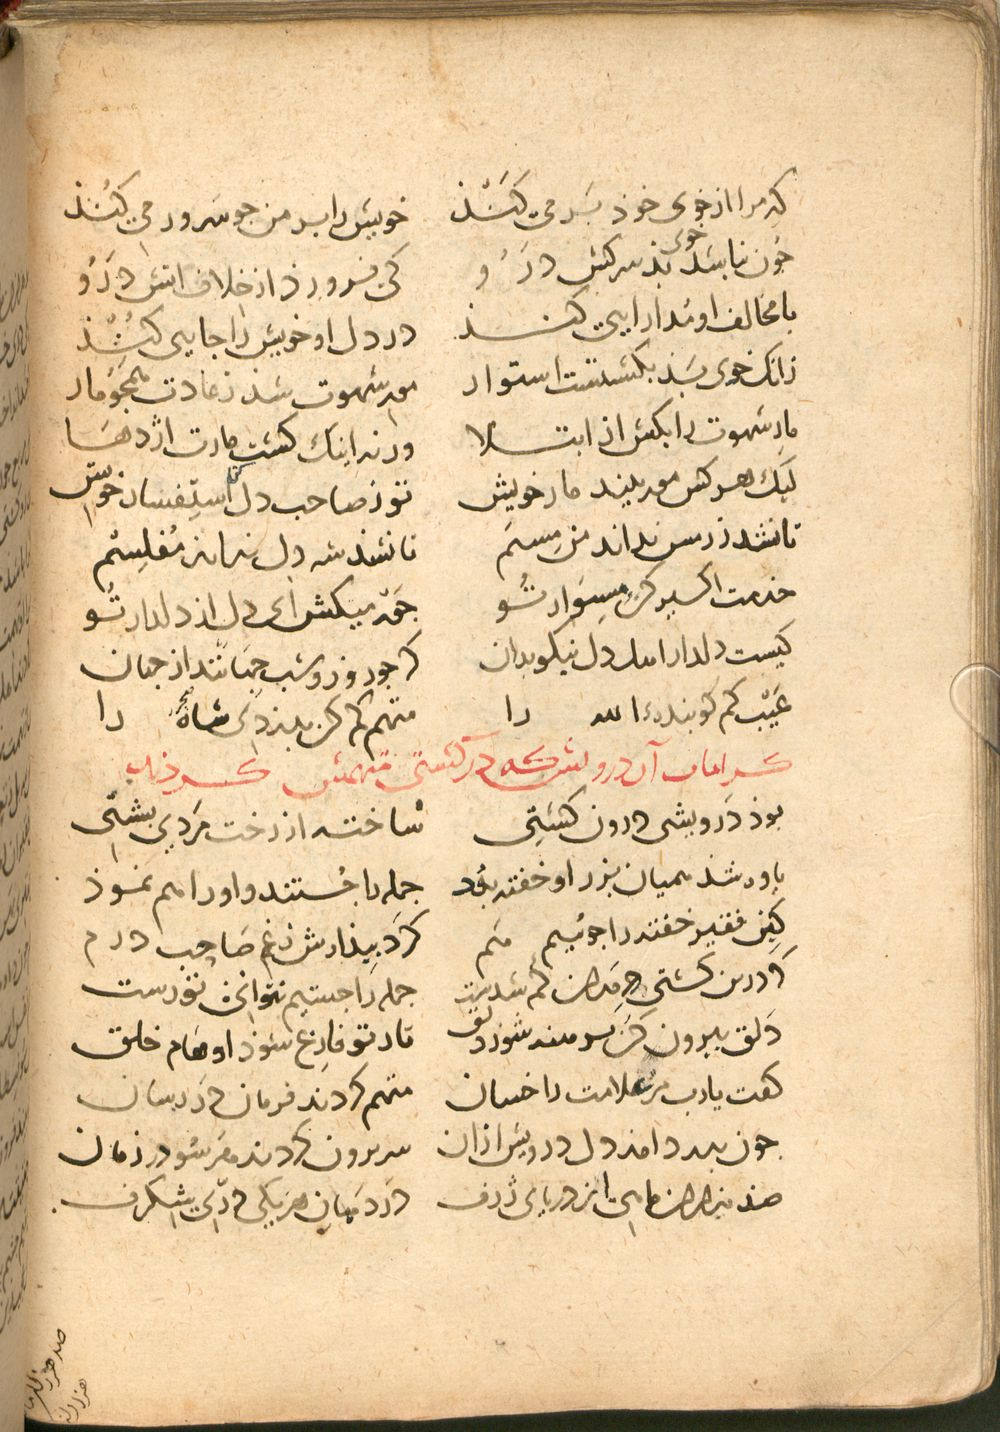 که مرا از خوی خوذ بر می کنذ خویش را بر من جو سرور می کنذ
جون نباشذ خوی بذ سرکش درو کی فروزذ از خلاف اتش درو
با مخالف او مدارایی کنذ در دل او خویش را جایی کنذ
زانک خوی بذ بکشتست استوار مور شهوت شذ ز عادت همجو مار
مار شهوت را بکش از ابتلا ورنه اینک کشت مارت اژدها
لیک هر کس مور بیند مار خویش تو ز صاحب دل کن استفسار خویش
تا نشد زر مس نداند من مسم تا نشد شه دل نداند مفلسم
خدمت اکسیر کن مس وار تو جور میکش ای دل از دلدار تو
کیست دلدار اهل دل نیکو بدان که جو روز و شب جهانند از جهان
عیب کم کو بنده الله را متهم کم کن بدزدی شاه را
کرامات آن درویش که در کشتی متهمش کردند
بوذ درویشی درون کشتیی ساخته از رخت مردی پشتیی
یاوه شذ همیان زر او خفته بود جمله را جستند و او را هم نموذ
کین فقیر خفته را جوییم هم کرد بیذارش ز غم صاحب درم
که درین کشتی حرمدان کم شدست جمله را جستیم نتوانی تو رست
دلق بیرون کن برهنه شو ز دلق تا ز تو فارغ شوذ اوهام خلق
کفت یا رب مر غلامت را خسان متهم کردند فرمان در رسان
جون بدرد امد دل درویش از ان سر برون کردند هر سو در زمان
صد هزاران ماهی از دریای ژرف در دهان هر یکی دری شکرف
صد هزار